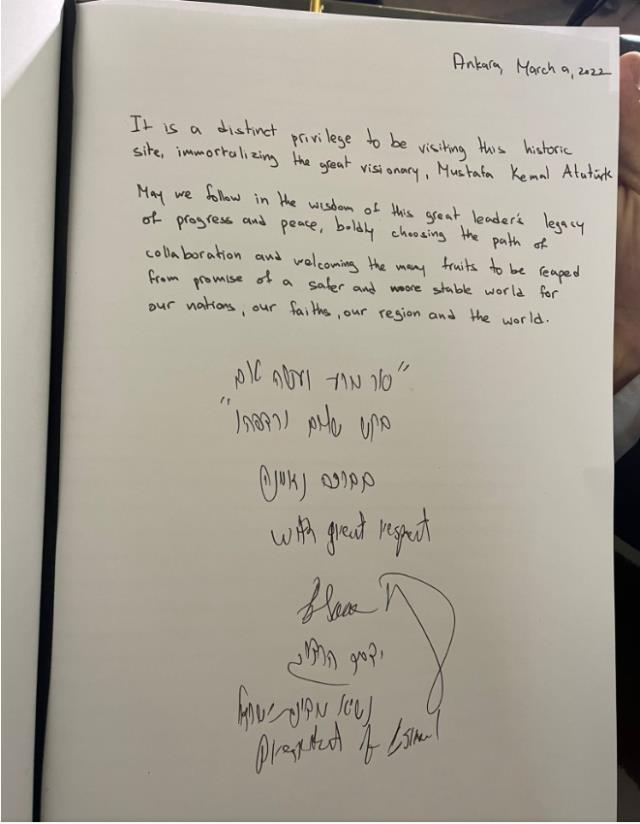 Ankara, March 9, 2022
It is a distinct privilege to be visiting this historic
site, immortalizing the great visionary, Mustafa Kemal Atatürk
May we follow in the wisdom of this great leader's legacy
of progress and peace, boldly choosing the path of
collaboration and welcoming the many fruits to be reaped
from promise of a safer and more stable world for
our nations, our faiths, our region and the world.
"סור מרע ועשה טוב
בקש שלום ורדפהו"
with great respect
יצחק הרצוג
נשיא מדינת ישראל
President of Israel